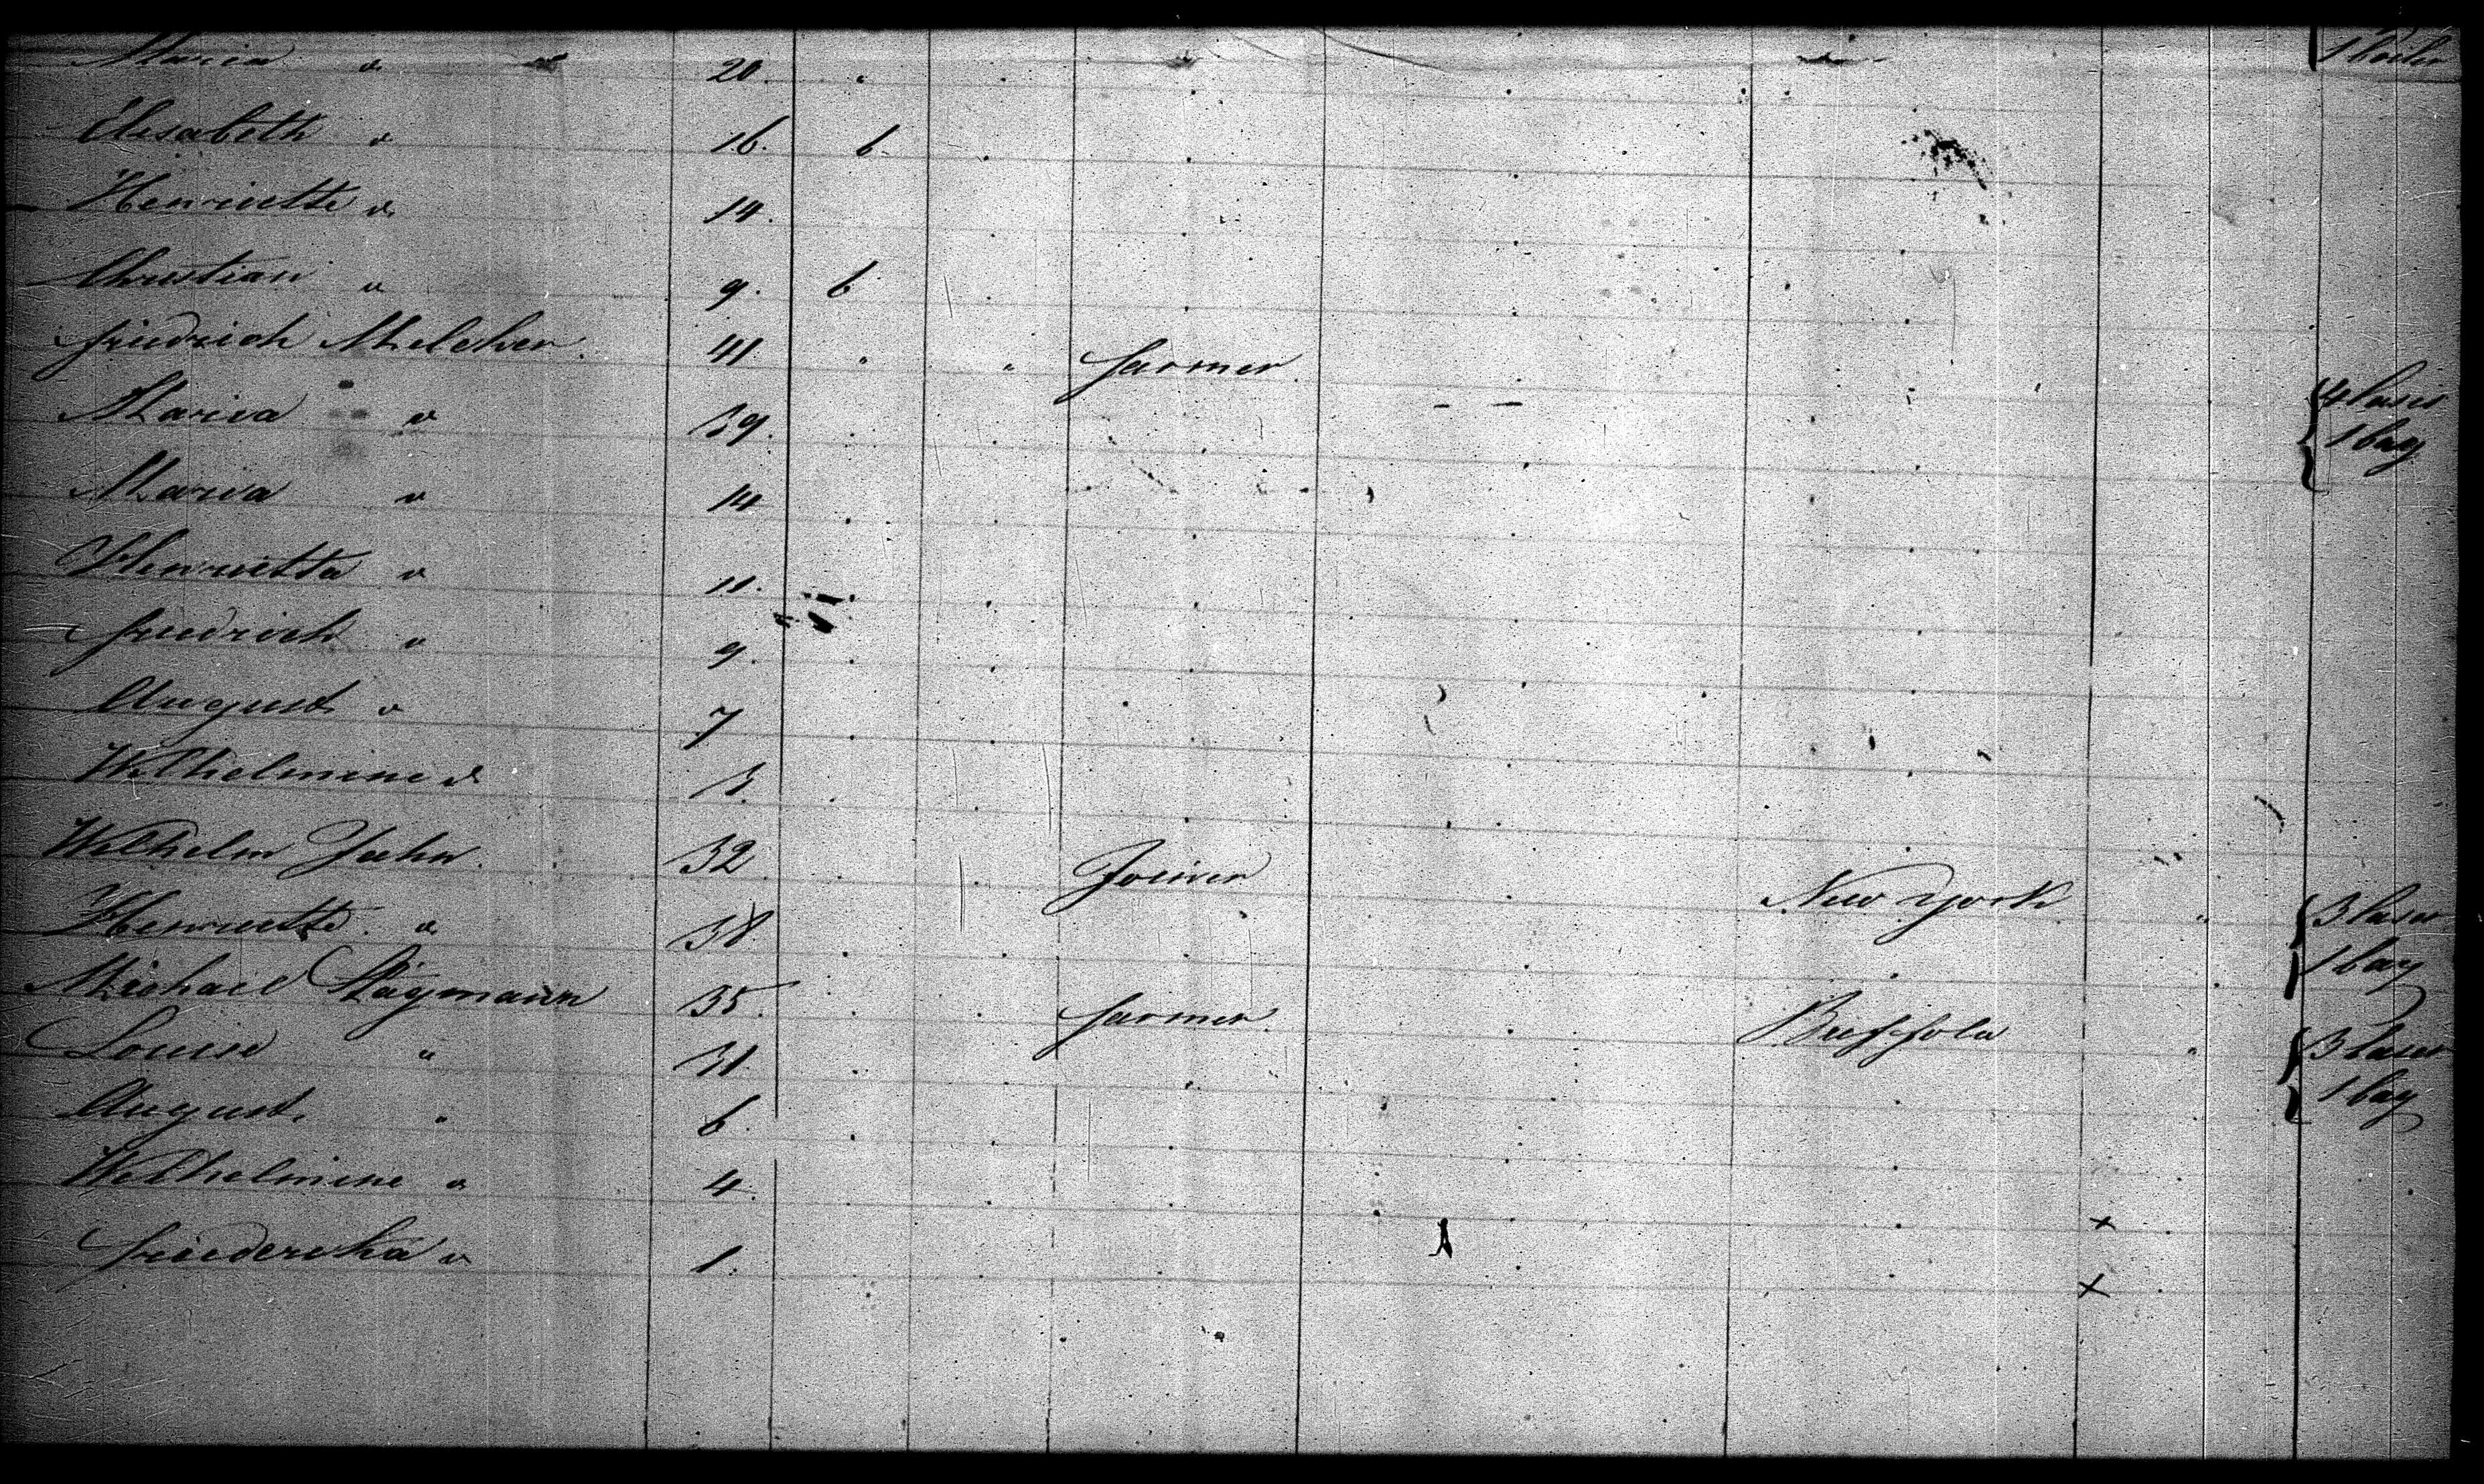 Maria " 20. "
Elisabeth " 16. 6
Henriette " 14.
Christian " 9. 6
Friedrich Melcher 41 " " farmer
Maria " 39. 4 cases
Maria " 14 1 bag
Henrietta " 11.
Friedrich " 9.
August " 7
Wilhelmine " 3.
Wilhelm Jahn. 32 Joiner New York
Henriette " 38 3 cases
Michael 35. farmer Buffolo 1 bag
Louise " 31. 3 cases
August " 6. 1 bag
Wilhelmine " 4. x
Friedericka " 1. x